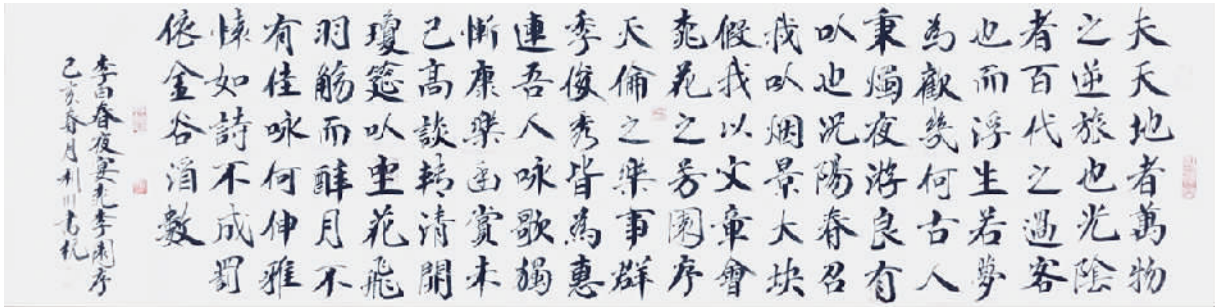 夫天地者萬物
之逆旅也光陰
者百代之過客
也而浮生若夢
為歡幾何古人
秉燭夜游良有
以也況陽春召
我以烟景大塊
假我以文章會
桃花之芳園序
天倫之樂事群
季俊秀皆為惠
連吾人咏歌獨
慚康樂幽賞未
已高談轉清開
瓊筵以坐花飛
羽觴而醉月不
有佳咏何伸雅
懷如詩不成罰
依金谷酒數
李白春夜宴桃李園序
己亥春月利川書